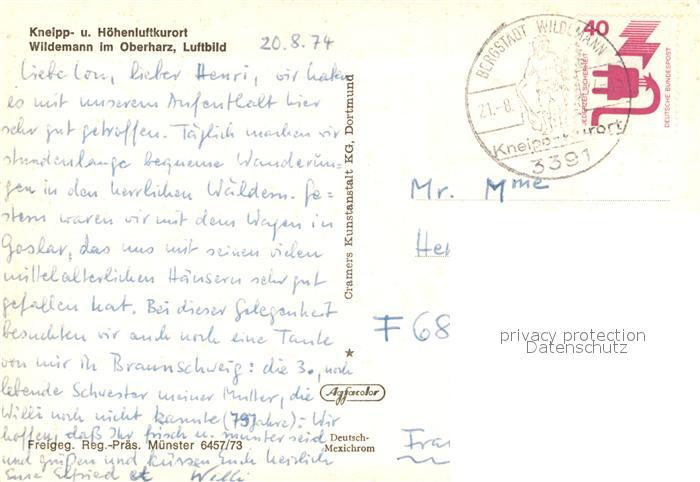 Kneipp- u. Höhenluftkurort
Wildemann im Oberharz, Luftbild
20.8.74
Liebe Lou, lieber Henri, wir haben
es mit unserem Aufenthalt hier
sehr gut getroffen. Täglich machen wir
stundenlange bequeme Wanderun-
gen in den herrlichen Wäldern. Ge-
stern waren wir mit dem Wagen in
Goslar, das uns mit seinen vielen
mittelalterlichen Häusern sehr gut
gefallen hat. Bei dieser Gelegenheit
besuchten wir auch noch eine Tante
von mir in Braunschweig: die 3., noch
lebende Schwester meiner Mutter, die
Willi noch nicht kannte (79 Jahre). Wir
hoffen, daß Ihr frisch u. munter seid
und grüßen und küssen Euch herzlich
Eure Elfriede et Willi
Freigeg. Reg.-Präs. Münster 6457/73
Cramers Kunstanstalt KG, Dortmund
Agfacolor
Deutsch-
Mexichrom
BERGSTADT WILDEMANN
21.-8.
Kneipp-Kurort
3391
40
JEDERZEIT SICHERHEIT
DEUTSCHE BUNDESPOST
Mr. Mme
He
F 68
Fra
privacy protection
Datenschutz